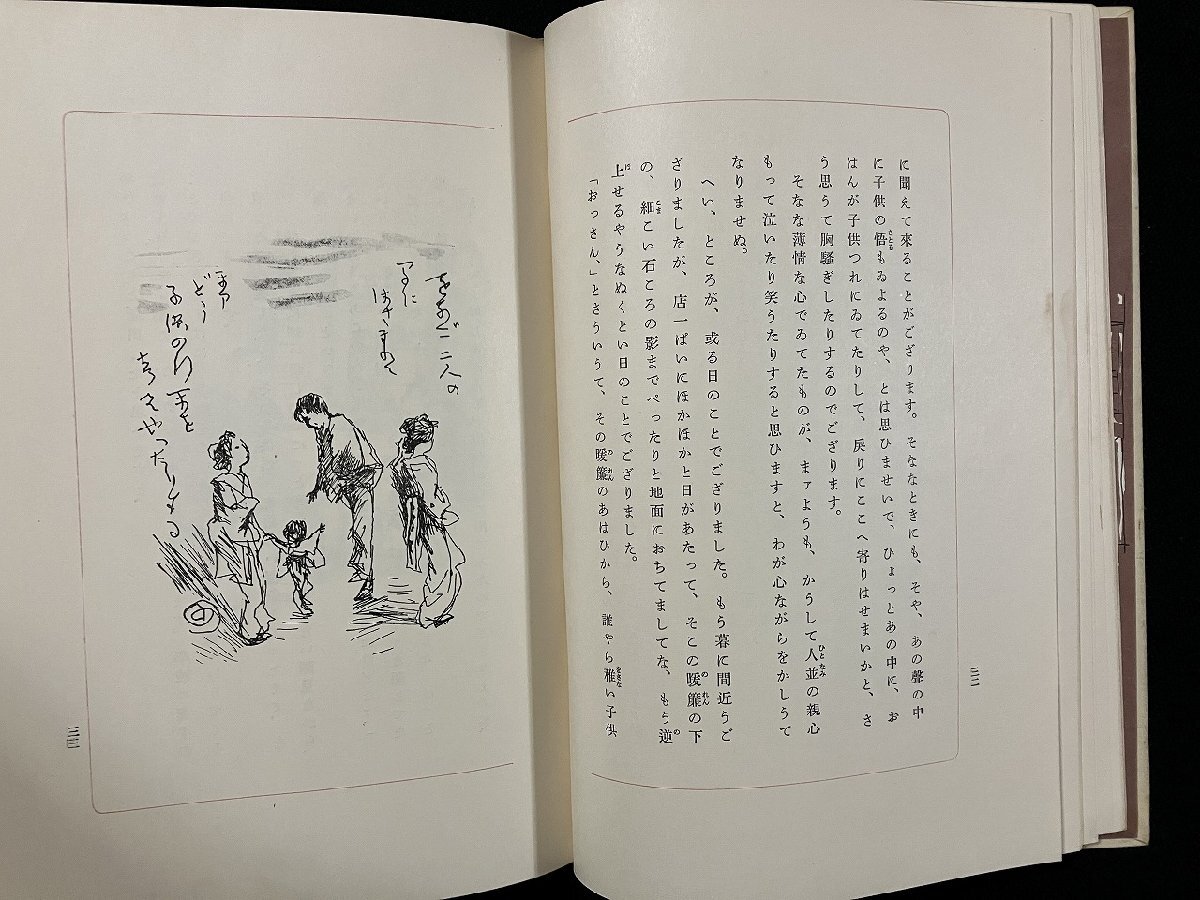 に聞えて來ることがござります。そなたときにも、そや、あの聲の中
に子供の悟もゐよるのや、とは思ひませいで、ひよつとあの中に、お
はんが子供つれにゐてたりして、戻りにここへ寄りはせまいかと、さ
う思うて胸騷ぎしたりするのでござります。
そなな薄情な心でゐてたものが、まァようも、かうして人並の親心
もつて泣いたり笑うたりすると思ひますと、わが心ながらをかしうて
なりませぬ。
へい、ところが、或る日のことでござりました。もう暮に間近うご
ざりましたが、店一ぱいにほかほかと日があたつて、そこの暖簾の下
の、細こい石ころの影までべつたりと地面におちてましてな、もう逆
上せるやうなぬくとい日のことでござりました。
「おつさん、」とさういうて、その暖簾のあはひから、誰やら稚い子供
三二
をなご二人の
なかに
はさまれて
まア
どう
子供の行末を
考へやつたりする
三三